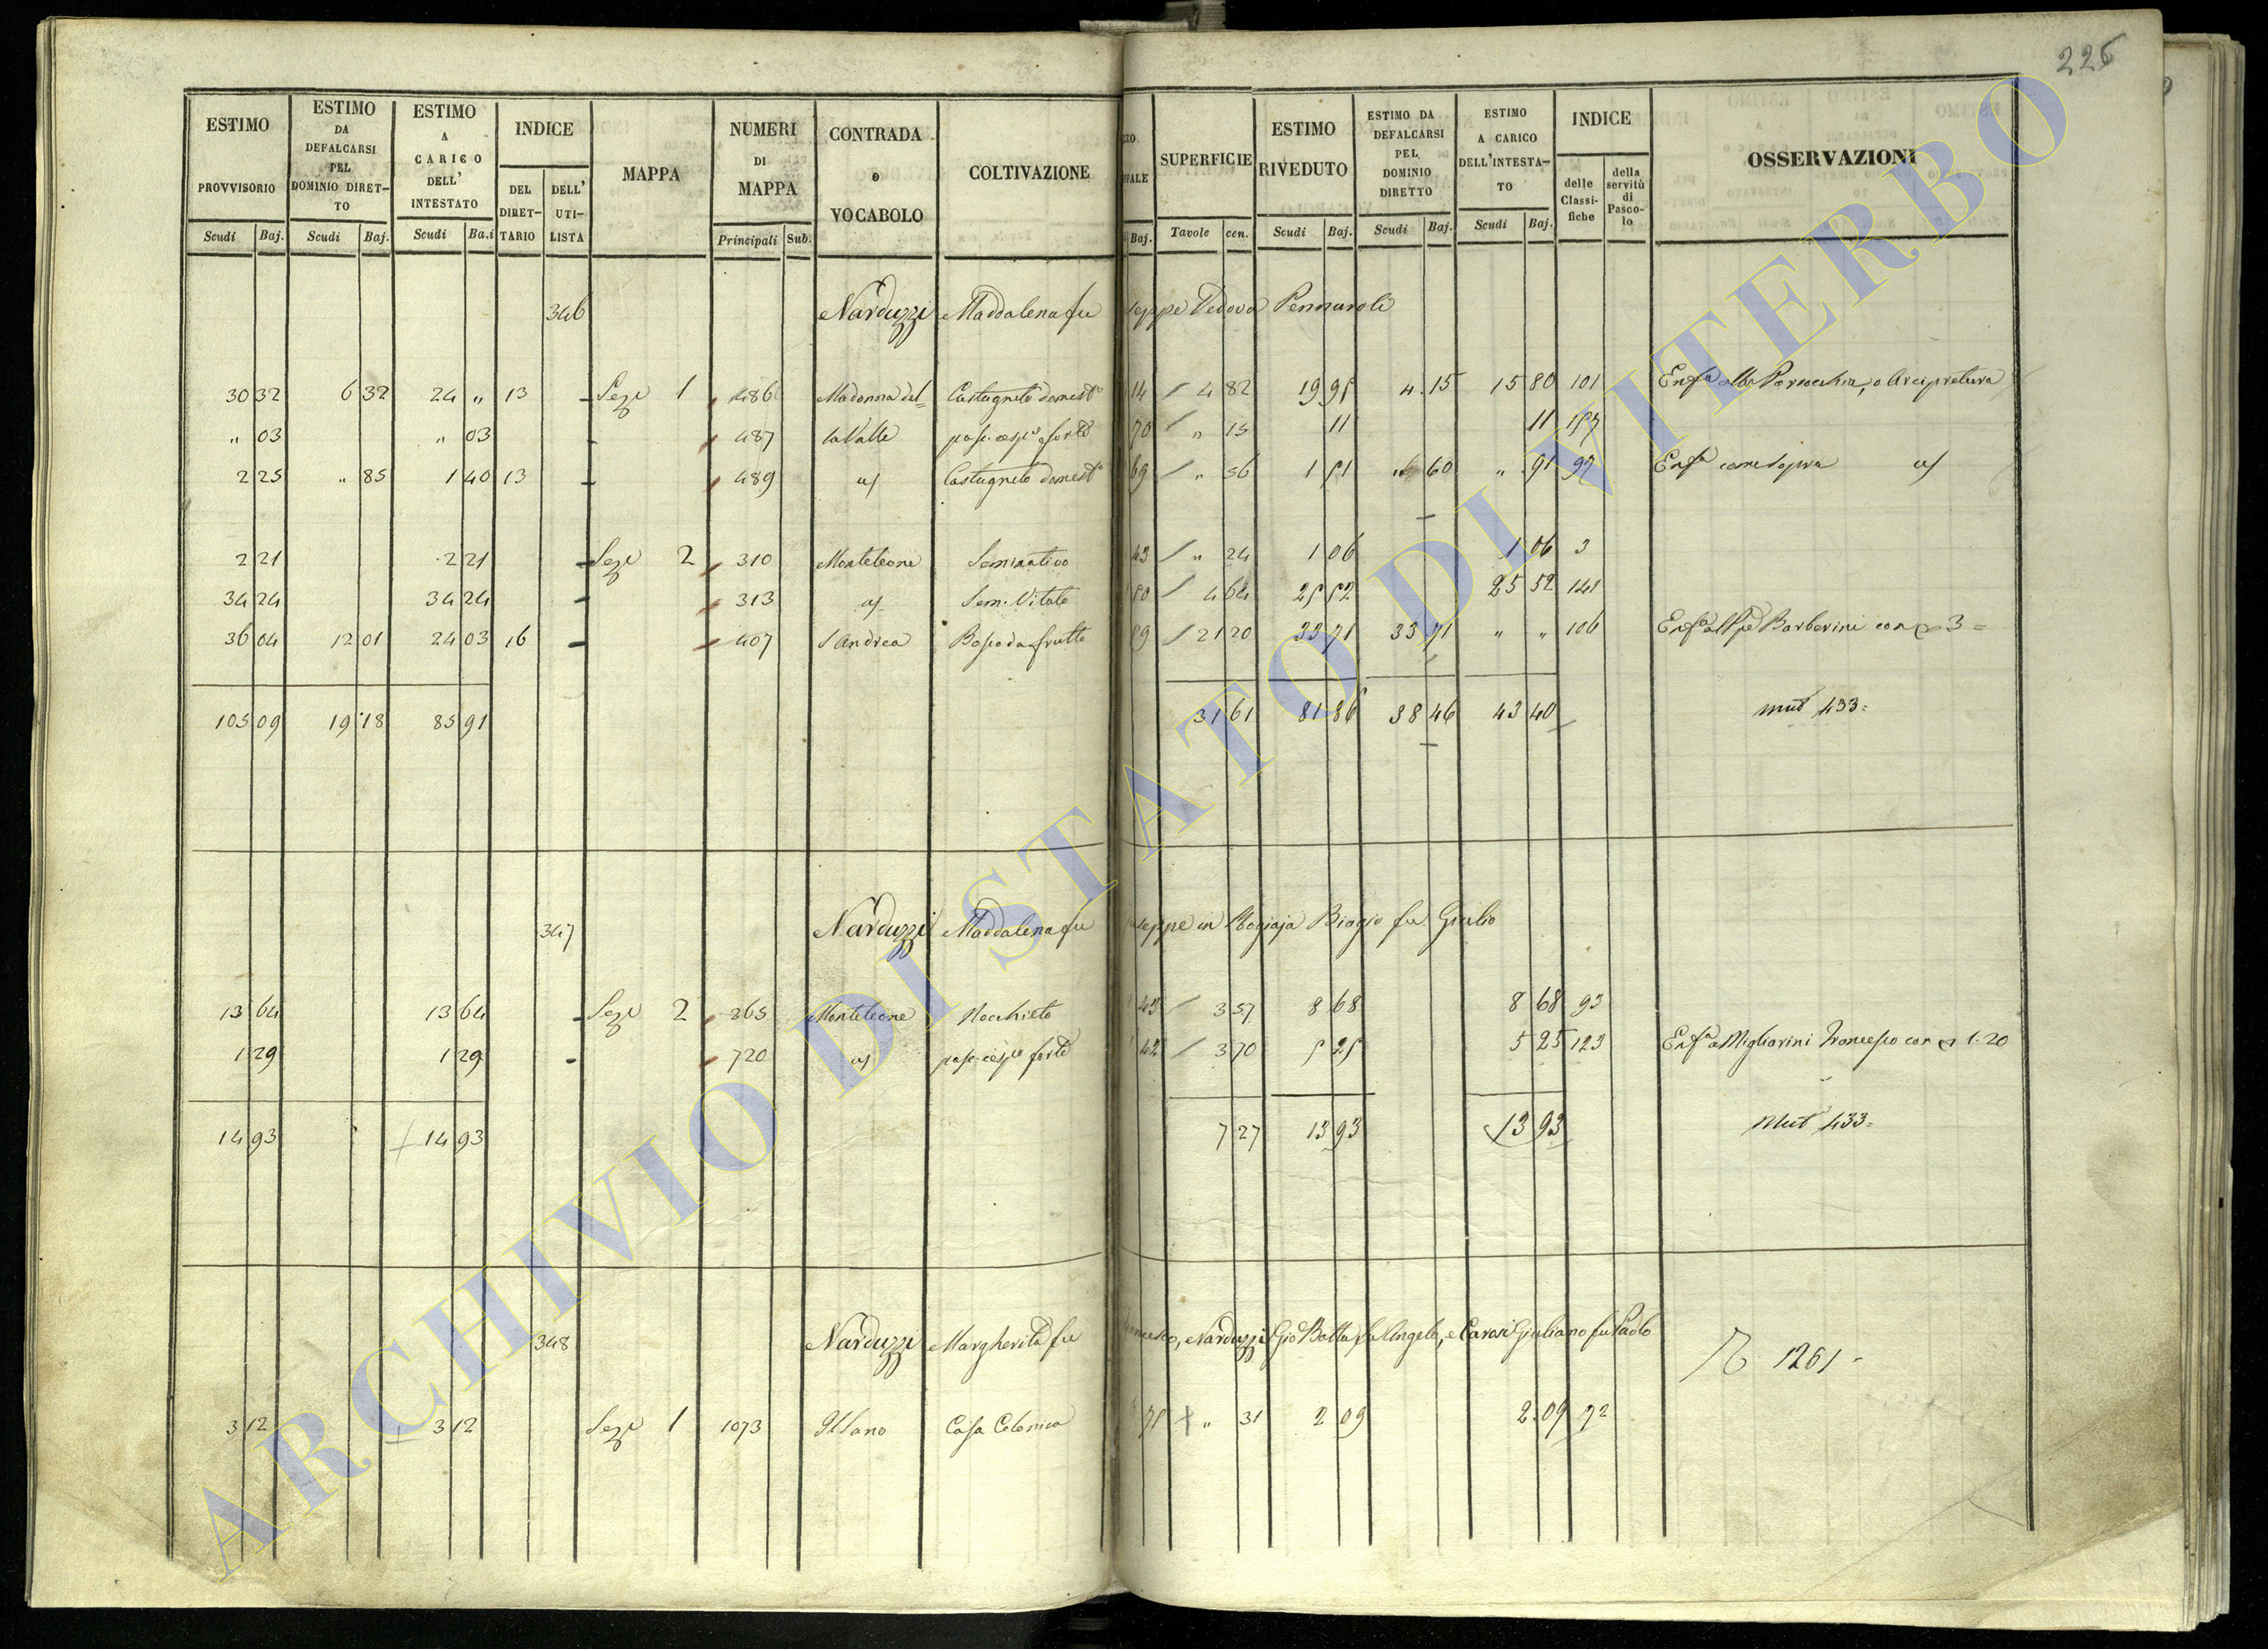 226
ESTIMO PROVVISORIO | ESTIMO DA DEFALCARSI PEL DOMINIO DIRETTO | ESTIMO A CARICO DELL' INTESTATO | INDICE | MAPPA | NUMERI DI MAPPA | CONTRADA o VOCABOLO | COLTIVAZIONE | SUPERFICIE | ESTIMO RIVEDUTO | ESTIMO DA DEFALCARSI PEL DOMINIO DIRETTO | ESTIMO A CARICO DELL'INTESTATO | INDICE | OSSERVAZIONI
DEL DIRETTARIO | DELL' UTILISTA | delle Classifiche | della servitù di Pascolo
Scudi | Baj. | Scudi | Baj. | Scudi | Ba.i | Principali | Sub. | Baj. | Tavole | cen. | Scudi | Baj. | Scudi | Baj. | Scudi | Baj.
346 Narduzzi Maddalena fu seppe Vedova Pennaroli
30 32 | 6 32 | 24 " | 13 | Seze 1 | 486 | Madonna del= | Castagneto domest° | 14 | 4 82 | 19 95 | 4.15 | 15 80 | 101 | Enfa alla Parrocchia, o Arcipretura
" 03 | " 03 | 487 | la Valle | pasc. cesp° forte | 70 | " 15 | 11 | 11 | 157
2 25 | " 85 | 1 40 | 13 | 489 | Castagneto domest° | 69 | " 56 | 1 51 | " 60 | " 91 | 97 | Enfa come sopra
2 21 | 2 21 | Seze 2 | 310 | Monteleone | Seminativo | 43 | " 24 | 1 06 | 1 06 | 3
34 24 | 34 24 | 313 | Sem. Vitato | 50 | 4 64 | 25 52 | 25 52 | 141
36 04 | 12 01 | 24 03 | 16 | 407 | S Andrea | Bosco da frutto | 59 | 21 20 | 33 71 | 33 71 | " " | 106 | Barberini con 3=
105 09 | 19 18 | 85 91 | 31 61 | 81 86 | 38 46 | 43 40 | mut 433=
347 Narduzzi Maddalena fu seppe in Biagio fu Giulio
13 64 | 13 64 | Seze 2 | 365 | Monteleone | Nocchieto | 43 | 3 57 | 8 68 | 8 68 | 93
1 29 | 1 29 | 720 | pasc. cesp° forte | 42 | 3 70 | 5 25 | 5 25 | 123 | Enfa a Migliarini Francesco con 1.20
14 93 | 14 93 | 7 27 | 13 93 | 13 93 | Mut 433=
348 Narduzzi Margherita fu ncesco, Narduzzi Gio Batta fu Angelo, e Carosi Giuliano fu Paolo
1261
3 12 | 3 12 | Seze 1 | 1073 | Casa Colonica | 71 | " 31 | 2 09 | 2.09 | 72
ARCHIVIO DI STATO DI VITERBO